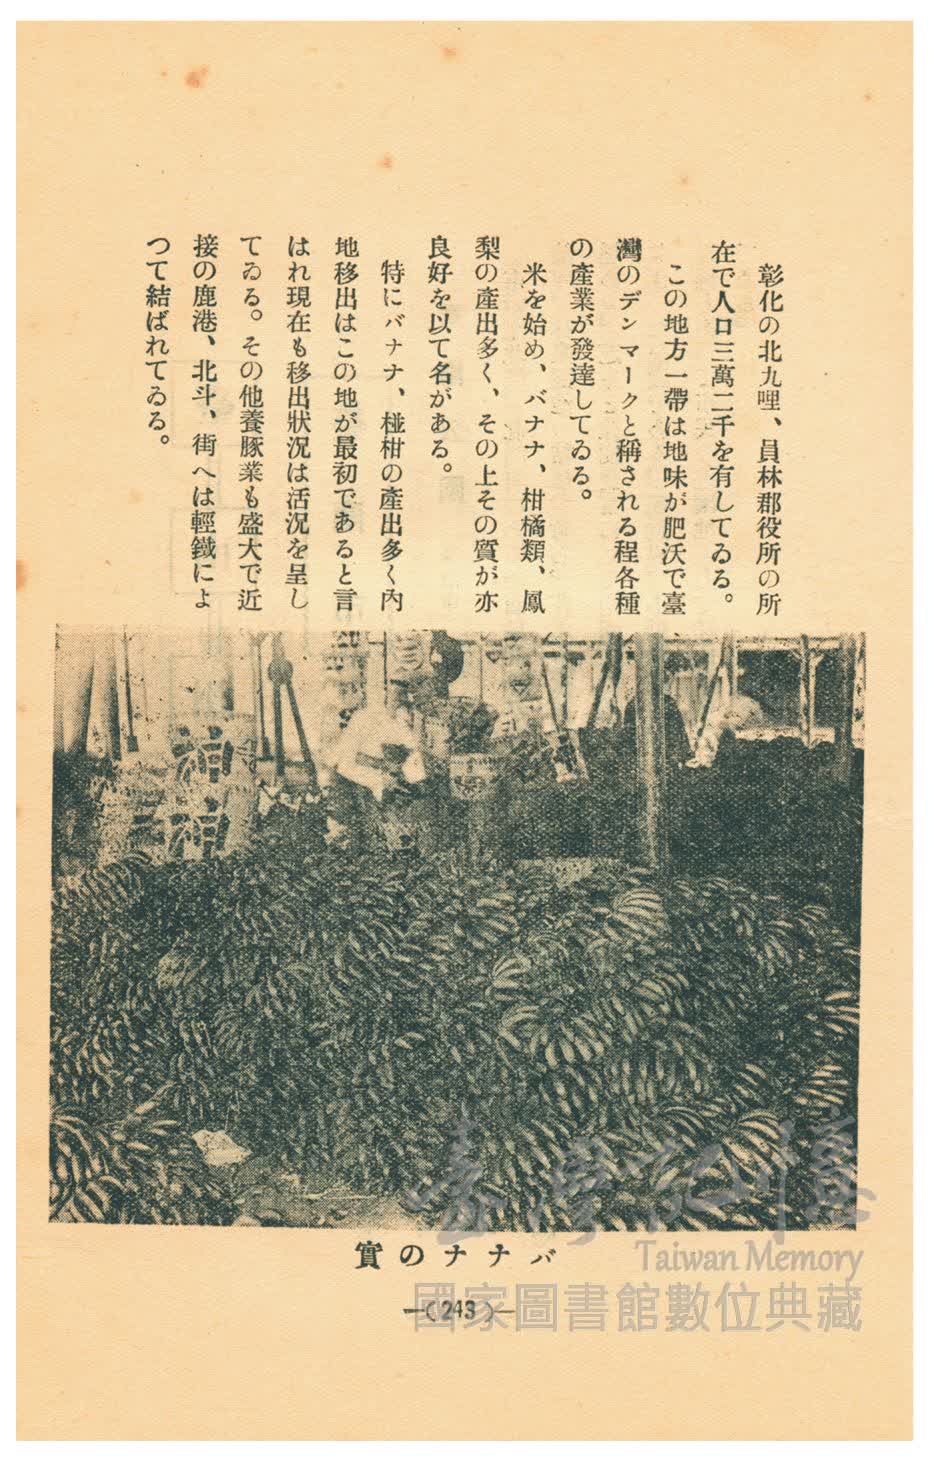 彰化の北九哩、員林郡役所の所
在で人口三萬二千を有してゐる。
この地方一帶は地味が肥沃で臺
灣のデンマークと稱される程各種
の產業が發達してゐる。
米を始め、バナナ、柑橘類、鳳
梨の產出多く、その上その質が亦
良好を以て名がある。
特にバナナ、椪柑の產出多く內
地移出はこの地が最初であると言
はれ現在も移出狀況は活況を呈し
てゐる。その他養豚業も盛大で近
接の鹿港、北斗、街へは輕鐵によ
つて結ばれてゐる。
バナナの實
—(243)—
臺灣記憶
Taiwan Memory
國家圖書館數位典藏